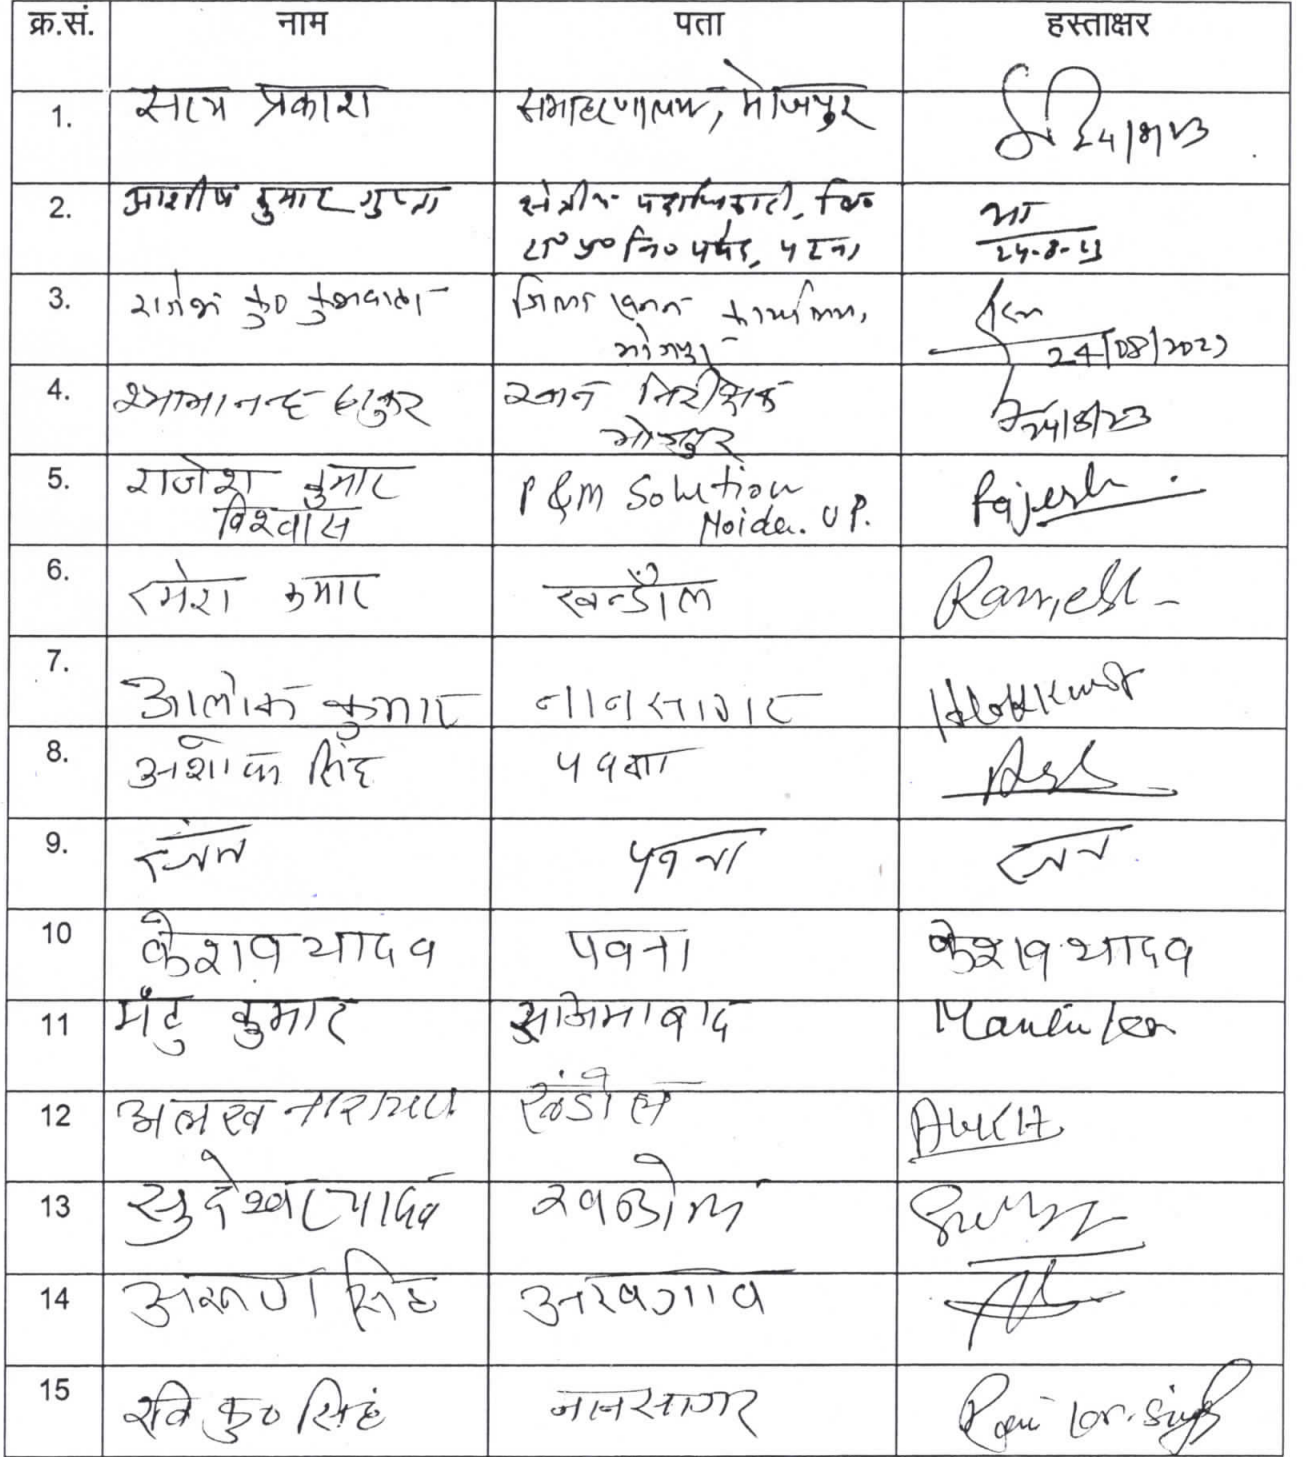 क्र.सं. नाम पता हस्ताक्षर
1. सत्य प्रकाश समाहरणालय, भोजपुर 24/8/23
2. आशीष कुमार गुप्ता क्षेत्रीय पदाधिकारी, बि०
रा० प्र० नि० पर्षद, पटना
24-8-23
3. राजेश कु० कुशवाहा जिला खनन कार्यालय,
भोजपुर 24/08/2023
4. श्यामानन्द ठाकुर खान निरीक्षक 24/8/23
भोजपुर
5. राजेश कुमार P&M Solution Rajesh
विश्वास Noida. U P.
6. रमेश कुमार खन्डौल Ramesh
7. आलोक कुमार नानसागर Alok Kumar
8. अशोक सिंह पवना
9. पवना
10 केशव यादव पवना केशव यादव
11 मंटु कुमार अजिमाबाद Mantu Kr
12 अलख नारायण खंडोल ALKH
13 सुदेश्वर यादव खण्डोल
14 अरूण सिंह अरवगाव
15 रवि कु० सिंह नानसागर Ravi kr. Singh